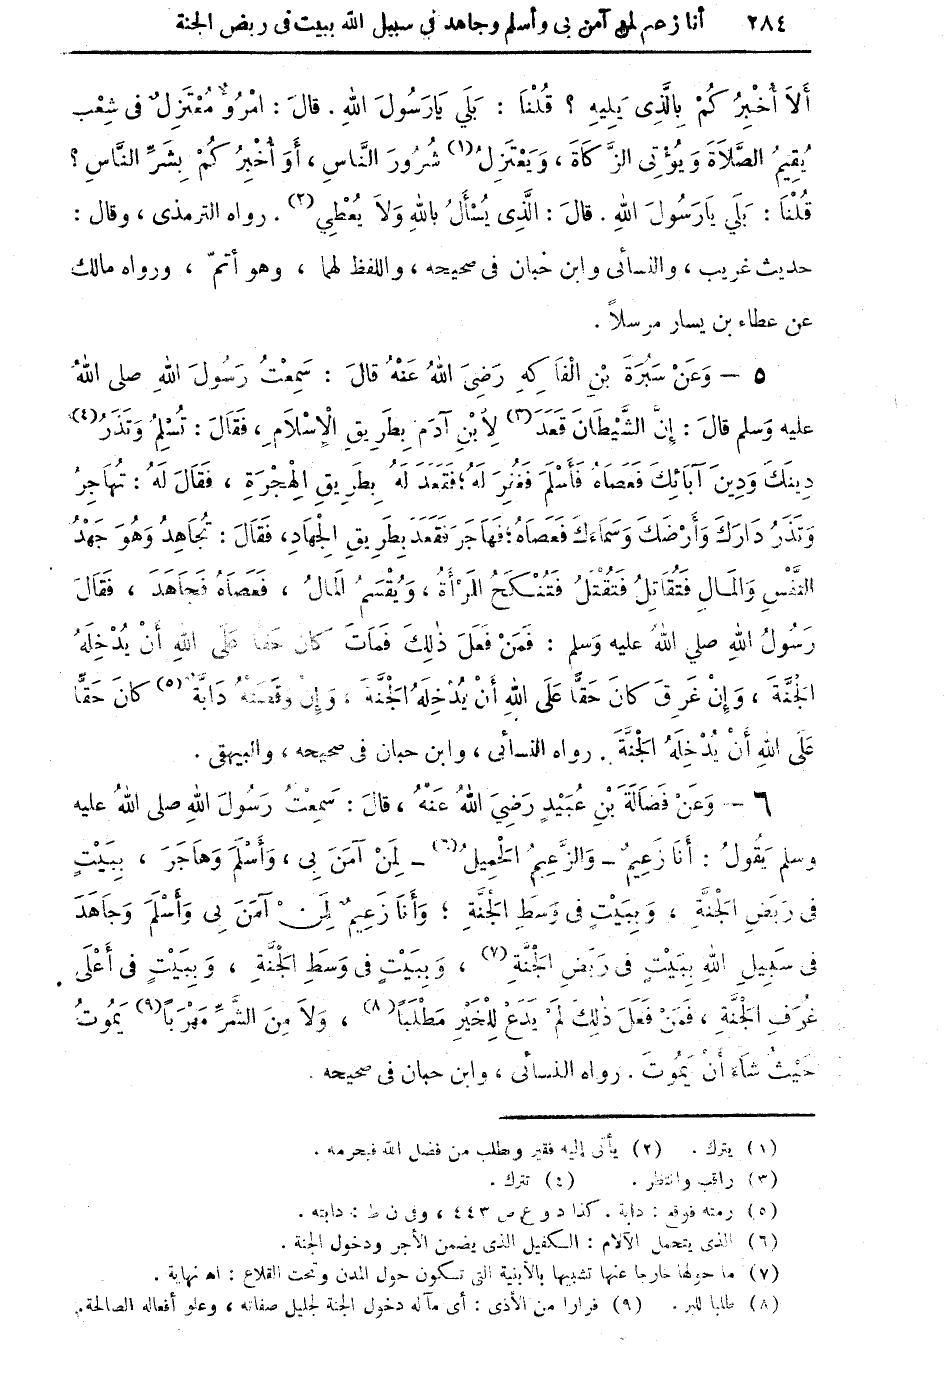 ٢٨٤ أنا زعيم لمن آمن بى وأسلم وجاهد في سبيل الله ببيت فى ربض الجنة
أَلاَ أُخْبِرُ كُمْ بِالَّذِى يَلِيهِ ؟ قُلْنَا : بَلَي يَارَسُولَ اللهِ . قالَ : امْرُؤٌ مُعْتَزِلٌ فى شِعْبٍ
يُقِيمُ الصَّلاَةَ وَيُؤْتِى الزَّ كَاةَ ، وَيَعْتَزِلُ(١) شُرُورَ النَّاسِ ، أَوَ أُخْبِرُ كُمْ بِشَرِّ النَّاسِ ؟
قُلْنَا : بَلَي يَارَسُولَ اللهِ . قالَ : الَّذِى يُسْأَلُ بِاللهِ وَلاَ يُعْطِي(٢) . رواه الترمذى ، وقال :
حديث غريب ، والنسائى وابن حبان فى صحيحه ، واللفظ لهما ، وهو أتمّ ، ورواه مالك
عن عطاء بن يسار مرسلاً .
٥ – وَعَنْ سَبْرَةَ بْنِ الْفَا كِهِ رَضِيَ اللهُ عَنْهُ قالَ : سَمِعْتُ رَسُولَ اللهِ صلى اللهُ
عليه وَسلم قالَ : إِنَّ الشَّيْطَانَ قَعَدَ(٣) لِأَبْنِ آدَمَ بِطَرِيقِ الْإِسْلاَمِ ، فَقَالَ : تُسْلِمُ وَتَذَرُ(٤)
دِينَكَ وَدِينَ آبَائِكَ فَعَصَاهُ فَأَسْلَمَ فَغُفِرَ لَهُ ؛ فَقَعَدَ لَهُ بِطَرِيقِ الْهِجْرَةِ ، فَقَالَ لَهُ : تُهَاجِرُ
وَتَذَرُ دَارَكَ وَأَرْضَكَ وَسَمَاءَكَ فَعَصَاهُ ؛ فَهَاجَرَ فَقَعَدَ بِطَرِيقِ الْجِهَادِ ، فَقَالَ : تُجَاهِدُ وَهُوَ جَهْدُ
النَّفْسِ وَالْمَالِ فَتُقَاتِلُ فَتُقْتَلُ فَتُنْكَحُ الْمَرْأَةُ ، وَيُقْسَمُ الْمَالُ ، فَعَصَاهُ فَجَاهَدَ ، فَقَالَ
رَسُولُ اللهِ صلي اللهُ عليه وَسلم : فَمَنْ فَعَلَ ذٰلِكَ فَمَاتَ كانَ حَقًّا عَلَى اللهِ أَنْ يُدْخِلَهُ
الْجَنَّةَ ، وَإِنْ غَرِقَ كانَ حَقًّا عَلَى اللهِ أَنْ يُدْخِلَهُ الْجَنَّةَ ، وَإِنْ وَقَصَتْهُ دَابَّةٌ(٥) كانَ حَقًّا
عَلَى اللهِ أَنْ يُدْخِلَهُ الْجَنَّةَ . رواه النسائى ، وابن حبان فى صحيحه ، والبيهقى .
٦ – وَعَنْ فَضَالَةَ بْنِ عُبَيْدٍ رَضِيَ اللهُ عَنْهُ ، قالَ : سَمِعْتُ رَسُولَ اللهِ صلى اللهُ عليه
وسلم يَقُولُ : أَنَا زَعِيمٌ – وَالزَّعِيمُ الْحَمِيلُ(٦) – لِمَنْ آمَنَ بِى ، وَأَسْلَمَ وَهَاجَرَ ، بِبَيْتٍ
فى رَبَضِ الْجَنَّةِ ، وَبِبَيْتٍ فى وَسَطِ الْجَنَّةِ ؛ وَأَنَا زَعِيمٌ لِمَنْ آمَنَ بِى وَأَسْلَمَ وَجَاهَدَ
فى سَبِيلِ اللهِ بِبَيْتٍ فى رَبَضِ الْجَنَّةِ(٧) ، وَبِبَيْتٍ فى وَسَطِ الْجَنَّةِ ، وَبِبَيْتٍ فى أَعْلَى
غُرَفِ الْجَنَّةِ ، فَمَنْ فَعَلَ ذٰلِكَ لَمْ يَدَعْ لِلْخَيْرِ مَطْلَبًا(٨) ، وَلاَ مِنَ الشَّرِّ مَهْرَبًا(٩) يَمُوتُ
حَيْثُ شَاءَ أَنْ يَمُوتَ . رواه النسائى ، وابن حبان فى صحيحه .
(١) يترك . (٢) يأتى إليه فقير ويطلب من فضل الله فيحرمه .
(٣) راقب وانتظر . (٤) تترك .
(٥) رمته فوقع : دابة . كذا د و ع ص ٤٤٣ ، وفى ن ط : دابته .
(٦) الذى يتحمل الآلام : الكفيل الذى يضمن الأجر ودخول الجنة .
(٧) ما حولها خارجا عنها تشبيها بالأبنية التى تكون حول المدن وتحت القلاع : اه نهاية .
(٨) طلبا للبر . (٩) فرارا من الأذى : أى مآله دخول الجنة لجليل صفاته ، وعلو أفعاله الصالحة .